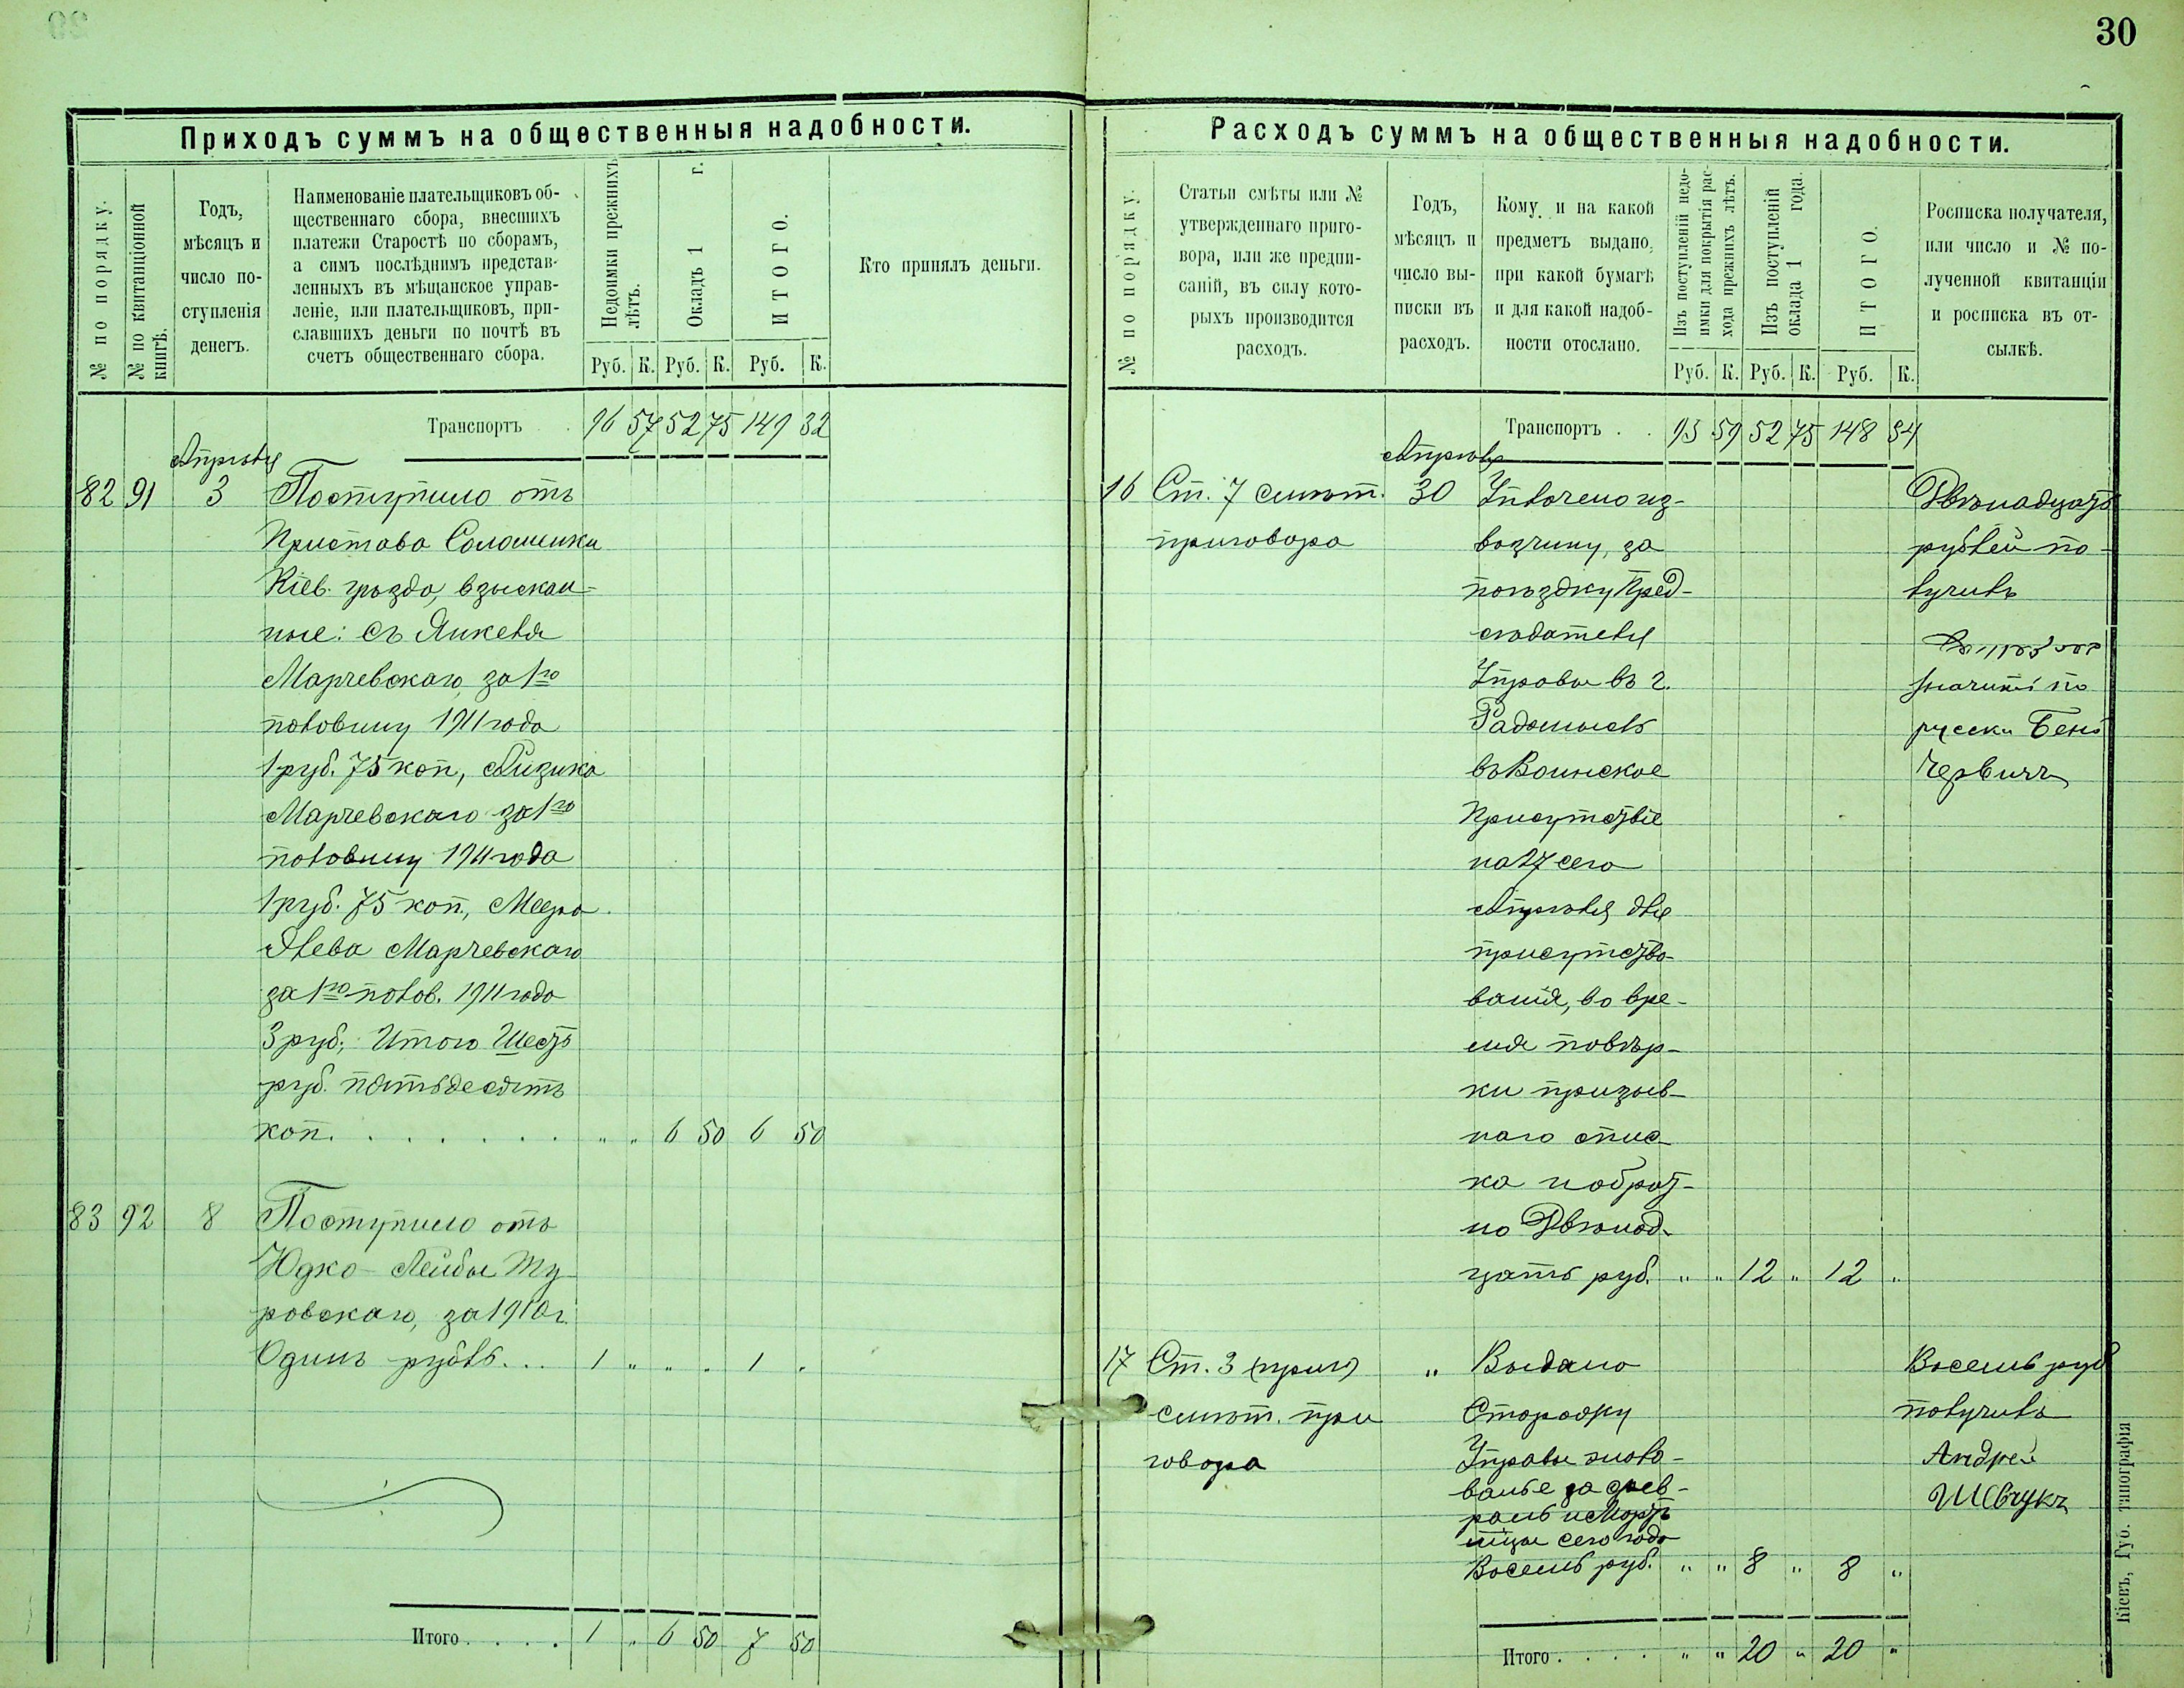 30
Приходъ суммъ на общественныя надобности.
№ по порядку.
№ по квитанціонной книгѣ.
Годъ,
мѣсяцъ и
число по-
ступленія
денегъ.
Наименованіе плательщиковъ об-
щественнаго сбора, внесшихъ
платежи Старостѣ по сборамъ,
а симъ послѣднимъ представ-
ленныхъ въ мѣщанское управ-
леніе, или плательщиковъ, при-
славшихъ деньги по почтѣ въ
счетъ общественнаго сбора.
Недоимки прежнихъ
лѣтъ.
Окладъ 1 г.
ИТОГО.
Кто принялъ деньги.
Руб. К. Руб. К. Руб. К.
Транспортъ . . 96 57 52 75 149 32
Апрѣля
82 91 3 Поступило отъ
Пристава Соломенки
Кіев. уѣзда, взыскан-
ные: съ Янкеля
Марчевскаго за 1ю
половину 1911 года
1 руб. 75 коп, Айзика
Марчевскаго за 1ю
половину 1911 года
1 руб. 75 коп., Меера
Лева Марчевскаго
за 1ю полов. 1911 года
3 руб; Итого Шесть
руб. пятьдесятъ
коп. . . . . . . " " 6 50 6 50
83 92 8 Поступило отъ
Юдко-Лейбы Ту-
ровскаго, за 1910 г.
Одинъ рубль... 1 " " . 1 .
Итого . . . . 1 " 6 50 7 50
Расходъ суммъ на общественныя надобности.
№ по порядку.
Статьи смѣты или №
утвержденнаго приго-
вора, или же предпи-
саній, въ силу кото-
рыхъ производится
расходъ.
Годъ,
мѣсяцъ и
число вы-
писки въ
расходъ.
Кому и на какой
предметъ выдано,
при какой бумагѣ
и для какой надоб-
ности отослано.
Изъ поступленій недо-
имки для покрытія рас-
хода прежнихъ лѣтъ.
Изъ поступленій
оклада 1 года.
ИТОГО.
Росписка получателя,
или число и № по-
лученной квитанціи
и росписка въ от-
сылкѣ.
Руб. К. Руб. К. Руб. К.
Транспортъ . . 95 59 52 75 148 34
Апрѣля
16 Ст. 7 смѣт. 30 Уплочено из- Двѣнадцать
приговора возчику, за рублей по-
поѣздку Пред- лучилъ
сѣдателя
Управы въ г. значитъ по
Радомысль русски Бень
въ Воинское Червичъ
Присутствіе
на 27 сего
Апрѣля для
присутство-
ванія, во вре-
мя повѣр-
ки призыв-
наго спис-
ка и обрат-
но Двѣнад-
цать руб. " " 12 " 12 "
17 Ст. 3 (прим) " Выдано Восемь руб
смѣт. при Сторожу получилъ
говора Управы жало- Андрей
ванье за Фев- Шевчукъ
раль и Мартъ
м-цы сего года
Восемь руб. " " 8 " 8 "
Итого . . . . " " 20 " 20 "
Кіевъ, Губ. типографія